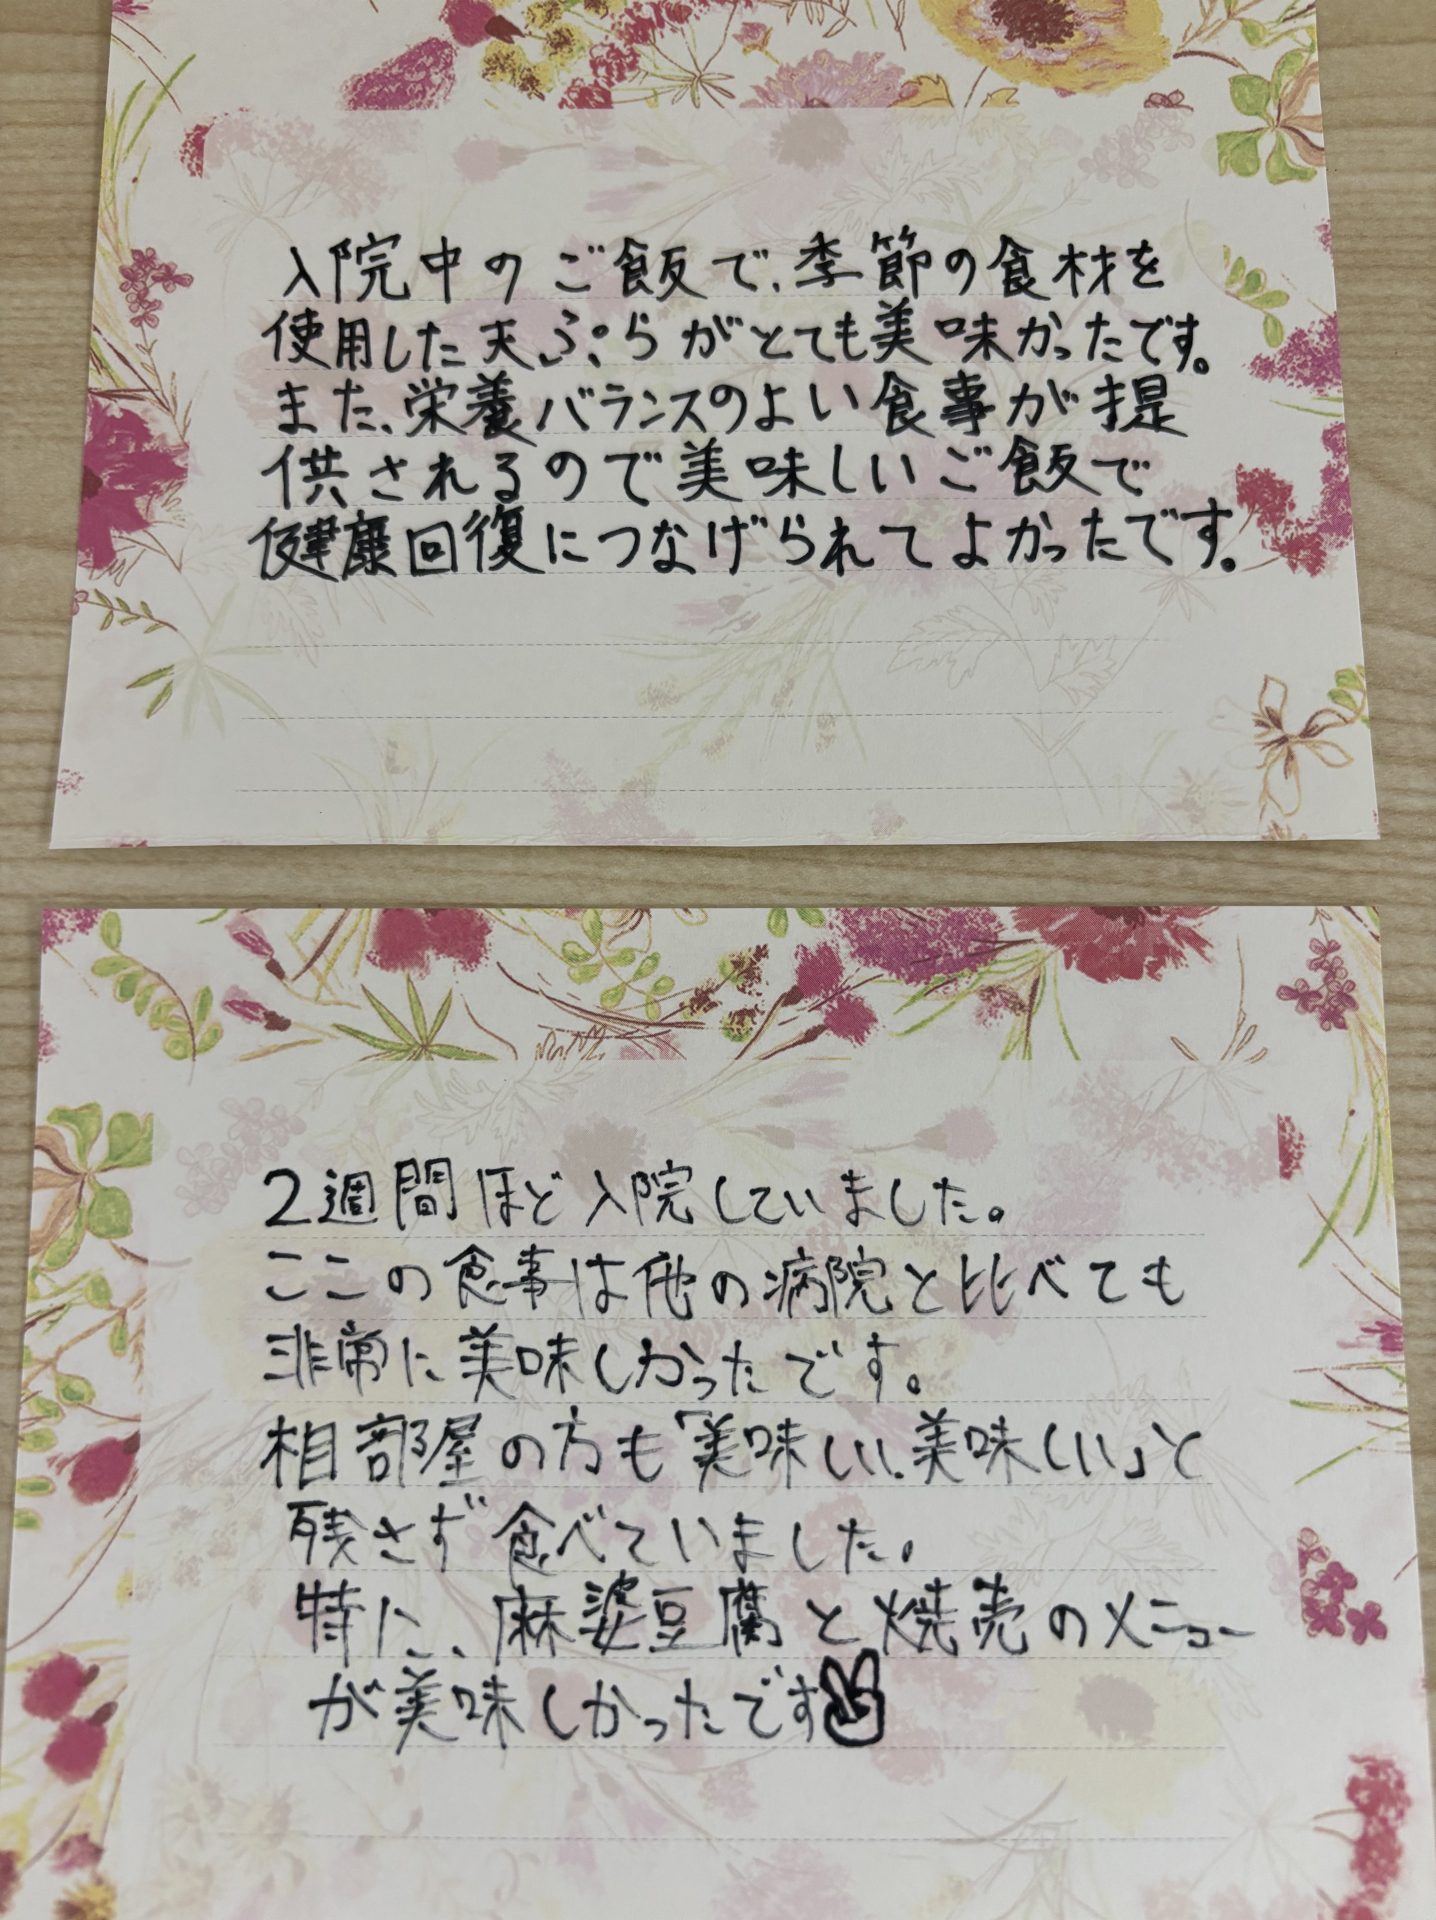 入院中のご飯で、季節の食材を
使用した天ぷらがとても美味かったです。
また、栄養バランスのよい食事が提
供されるので美味しいご飯で
健康回復につなげられてよかったです。
2週間ほど入院していました。
ここの食事は他の病院と比べても
非常に美味しかったです。
相部屋の方も「美味しい、美味しい」と
残さず食べていました。
特に、麻婆豆腐と焼売のメニュー
が美味しかったです✌